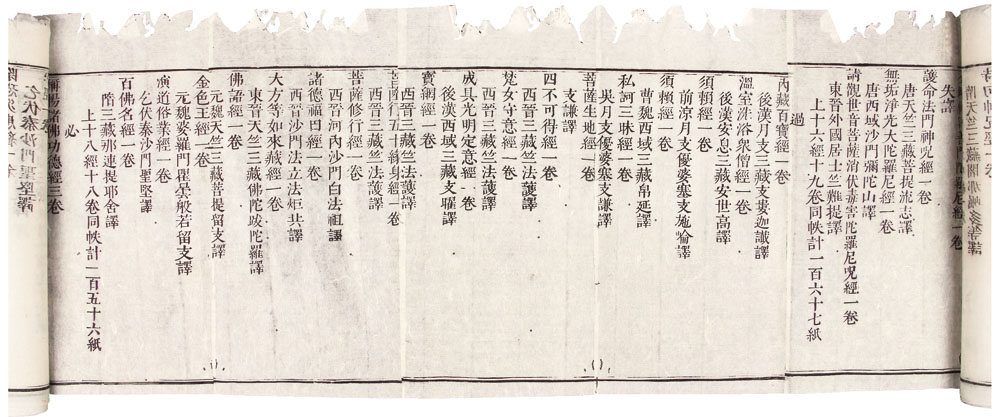 護命法門神呪經一卷
失譯
唐天竺三藏菩提流志譯
無垢淨光大陀羅尼經一卷
唐西域沙門彌陀山譯
請觀世音菩薩消伏毒害陀羅尼呪經一卷
東晉外國居士竺難提譯
上十六經十九卷同帙計一百六十七紙
過
內藏百寶經一卷
後漢月支三藏支婁迦讖譯
溫室洗浴衆僧經一卷
後漢安息三藏安世高譯
須賴經一卷
前涼月支優婆塞支施崙譯
須賴經一卷
曹魏西域三藏帛延譯
私訶三昧經一卷
吳月支優婆塞支謙譯
菩薩生地經一卷
支謙譯
四不可得經一卷
西晉三藏竺法護譯
梵女守意經一卷
西晉三藏竺法護譯
成具光明定意經一卷
後漢西域三藏支曜譯
寶網經一卷
西晉三藏竺法護譯
菩薩行五十緣身經一卷
西晉三藏竺法護譯
菩薩修行經一卷
西晉河內沙門白法祖譯
諸德福田經一卷
西晉沙門法立法炬共譯
大方等如來藏經一卷
東晉天竺三藏佛陀跋陀羅譯
佛語經一卷
元魏天竺三藏菩提留支譯
金色王經一卷
元魏婆羅門瞿曇般若留支譯
演道俗業經一卷
乞伏秦沙門聖堅譯
百佛名經一卷
隋三藏那連提耶舍譯
上十八經十八卷同帙計一百五十六紙
必
稱揚諸佛功德經三卷